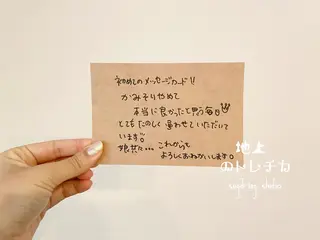 初めてのメッセージカード!!
かみそりやめて
本当に良かったと思う毎日
とても たのしく 通わせていただいて
います。
娘共々... これからも
よろしくおねがいします。
地上
のトレチカ